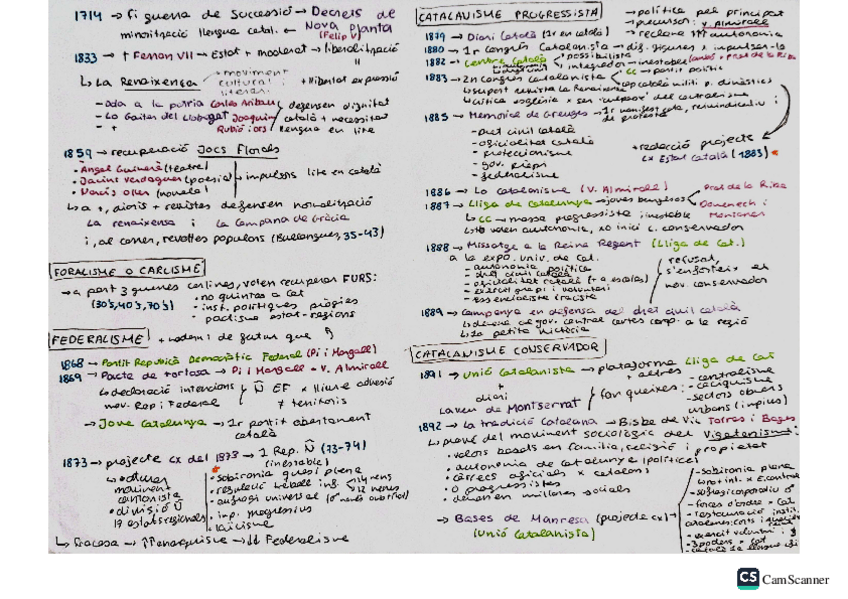 1714 → fi guerra de successió → Decrets de
minorització llengua catal. ← Nova Planta
(Felip V)
1833 → † Ferran VII → Estat + moderat → liberalització
↳ La Renaixença → moviment
cultural i
literari
+ llibertat expressió
- Oda a la pàtria Carles Aribau
- Lo Gaiter del Llobregat Joaquim
Rubió i Ors
defensen dignitat
català + necessitat
llengua en lite
1859 → recuperació Jocs Florals
• Àngel Guimerà (teatre)
• Jacint Verdaguer (poesia) → impulsors lite en català
• Narcís Oller (novela)
↳ a +, diaris + revistes defensen normalització
La renaixensa i La Campana de Gràcia
i, al carrer, revoltes populars (Bullangues, 35-43)
FORALISME O CARLISME
→ a part 3 guerres carlines, volen recuperar FURS:
(30's, 40's, 70's)
• no quintas a Cat
• inst. polítiques pròpies
• pactisme estat-regions
FEDERALISME
1868 → Partit Republicà Democràtic Federal (Pi i Margall)
1869 → Pacte de Tortosa → Pi i Margall - V. Almirall
↳ declaració intencions
nov. Rep i Federal
EF x lliure adhesió
≠ territoris
→ Jove Catalunya → 1r partit obertament
català
1873 → projecte cx del 1873 → 1 Rep. Ñ (73-74)
(inestable)
moviment
cantonista
• divisió Ñ
19 estats regionals
• sobirania quasi plena
• sufragi universal
• imp. progressius
• laïcisme
↳ fracassa → ↑↑ anarquisme → ↓↓ Federalisme
CATALANISME PROGRESSISTA
→ política pel principat
→ precursor: V. Almirall
→ reclama autonomia
1879 → Diari Català (1r en català)
1880 → 1r Congrés Catalanista → dif. figures x impulsar-lo
1882 → Centre Català
possibilista
integrador → inestable
1883 → 2n Congrés Catalanista
CC → partit polític
1885 → Memorial de Greuges → 1r manifest cata, reivindicatiu i
de protesta
- Dret civil català
- oficialitat català
- proteccionisme
- gov. propi
- federalisme
+ redacció projecte
cx Estat Català (1883)
1886 → Lo Catalanisme (V. Almirall)
1887 → Lliga de Catalunya → joves burgesos
Prat de la Riba
Domènech i
Montaner
↳ CC → massa progressista i inestable
↳ No volen autonomia, xo inici c. conservador
1888 → Missatge a la Reina Regent (Lliga de Cat.)
a la expo. univ. de Cat.
- autonomia política
- dret civil català
- oficialitat català (+ a escoles)
- exèrcit propi i voluntari
refusat,
s'enforteix el
mov. conservador
1889 → Campanya en defensa del dret civil català
↳ 1a petita victòria
CATALANISME CONSERVADOR
1891 → Unió Catalanista → plataforma Lliga de Cat
+ altres
+
diari
La Veu de Montserrat
fan queixes:
- centralisme
- caciquisme
- sectors obrers
urbans (impius)
1892 → La tradició Catalana → Bisbe de Vic Torras i Bages
↳ prové del moviment sociològic del Vigatanisme:
• valors basats en família, religió i propietat
• autonomia de Catalunya (política)
• càrrecs oficials x catalans
• 0 progressistes
• demanen millores socials
→ Bases de Manresa (projecte cx)
(Unió Catalanista)
- sobirania plena
- sufragi corporatiu ♂
- forces d'ordre = Cat
- restauració instit.
- exèrcit voluntari
- 3 poders = Cat
CS CamScanner